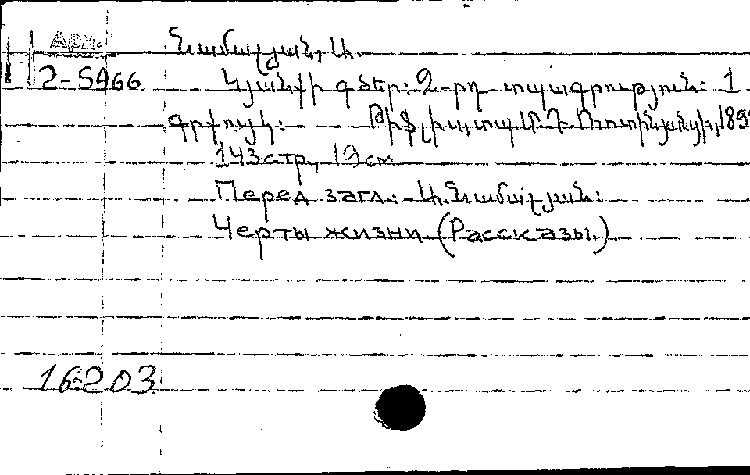 Арм.
2-5966
Նամալյան, Ա.
Կյանքի գծեր: 2-րդ տպագրություն: 1
գրքույկ: Թիֆլիս, տպ. Մ.Դ. Ռոտինյանցի, 189
143 стр., 19 см
Перед загл.: Ա. Նամալյան:
Черты жизни (Рассказы.)
16203